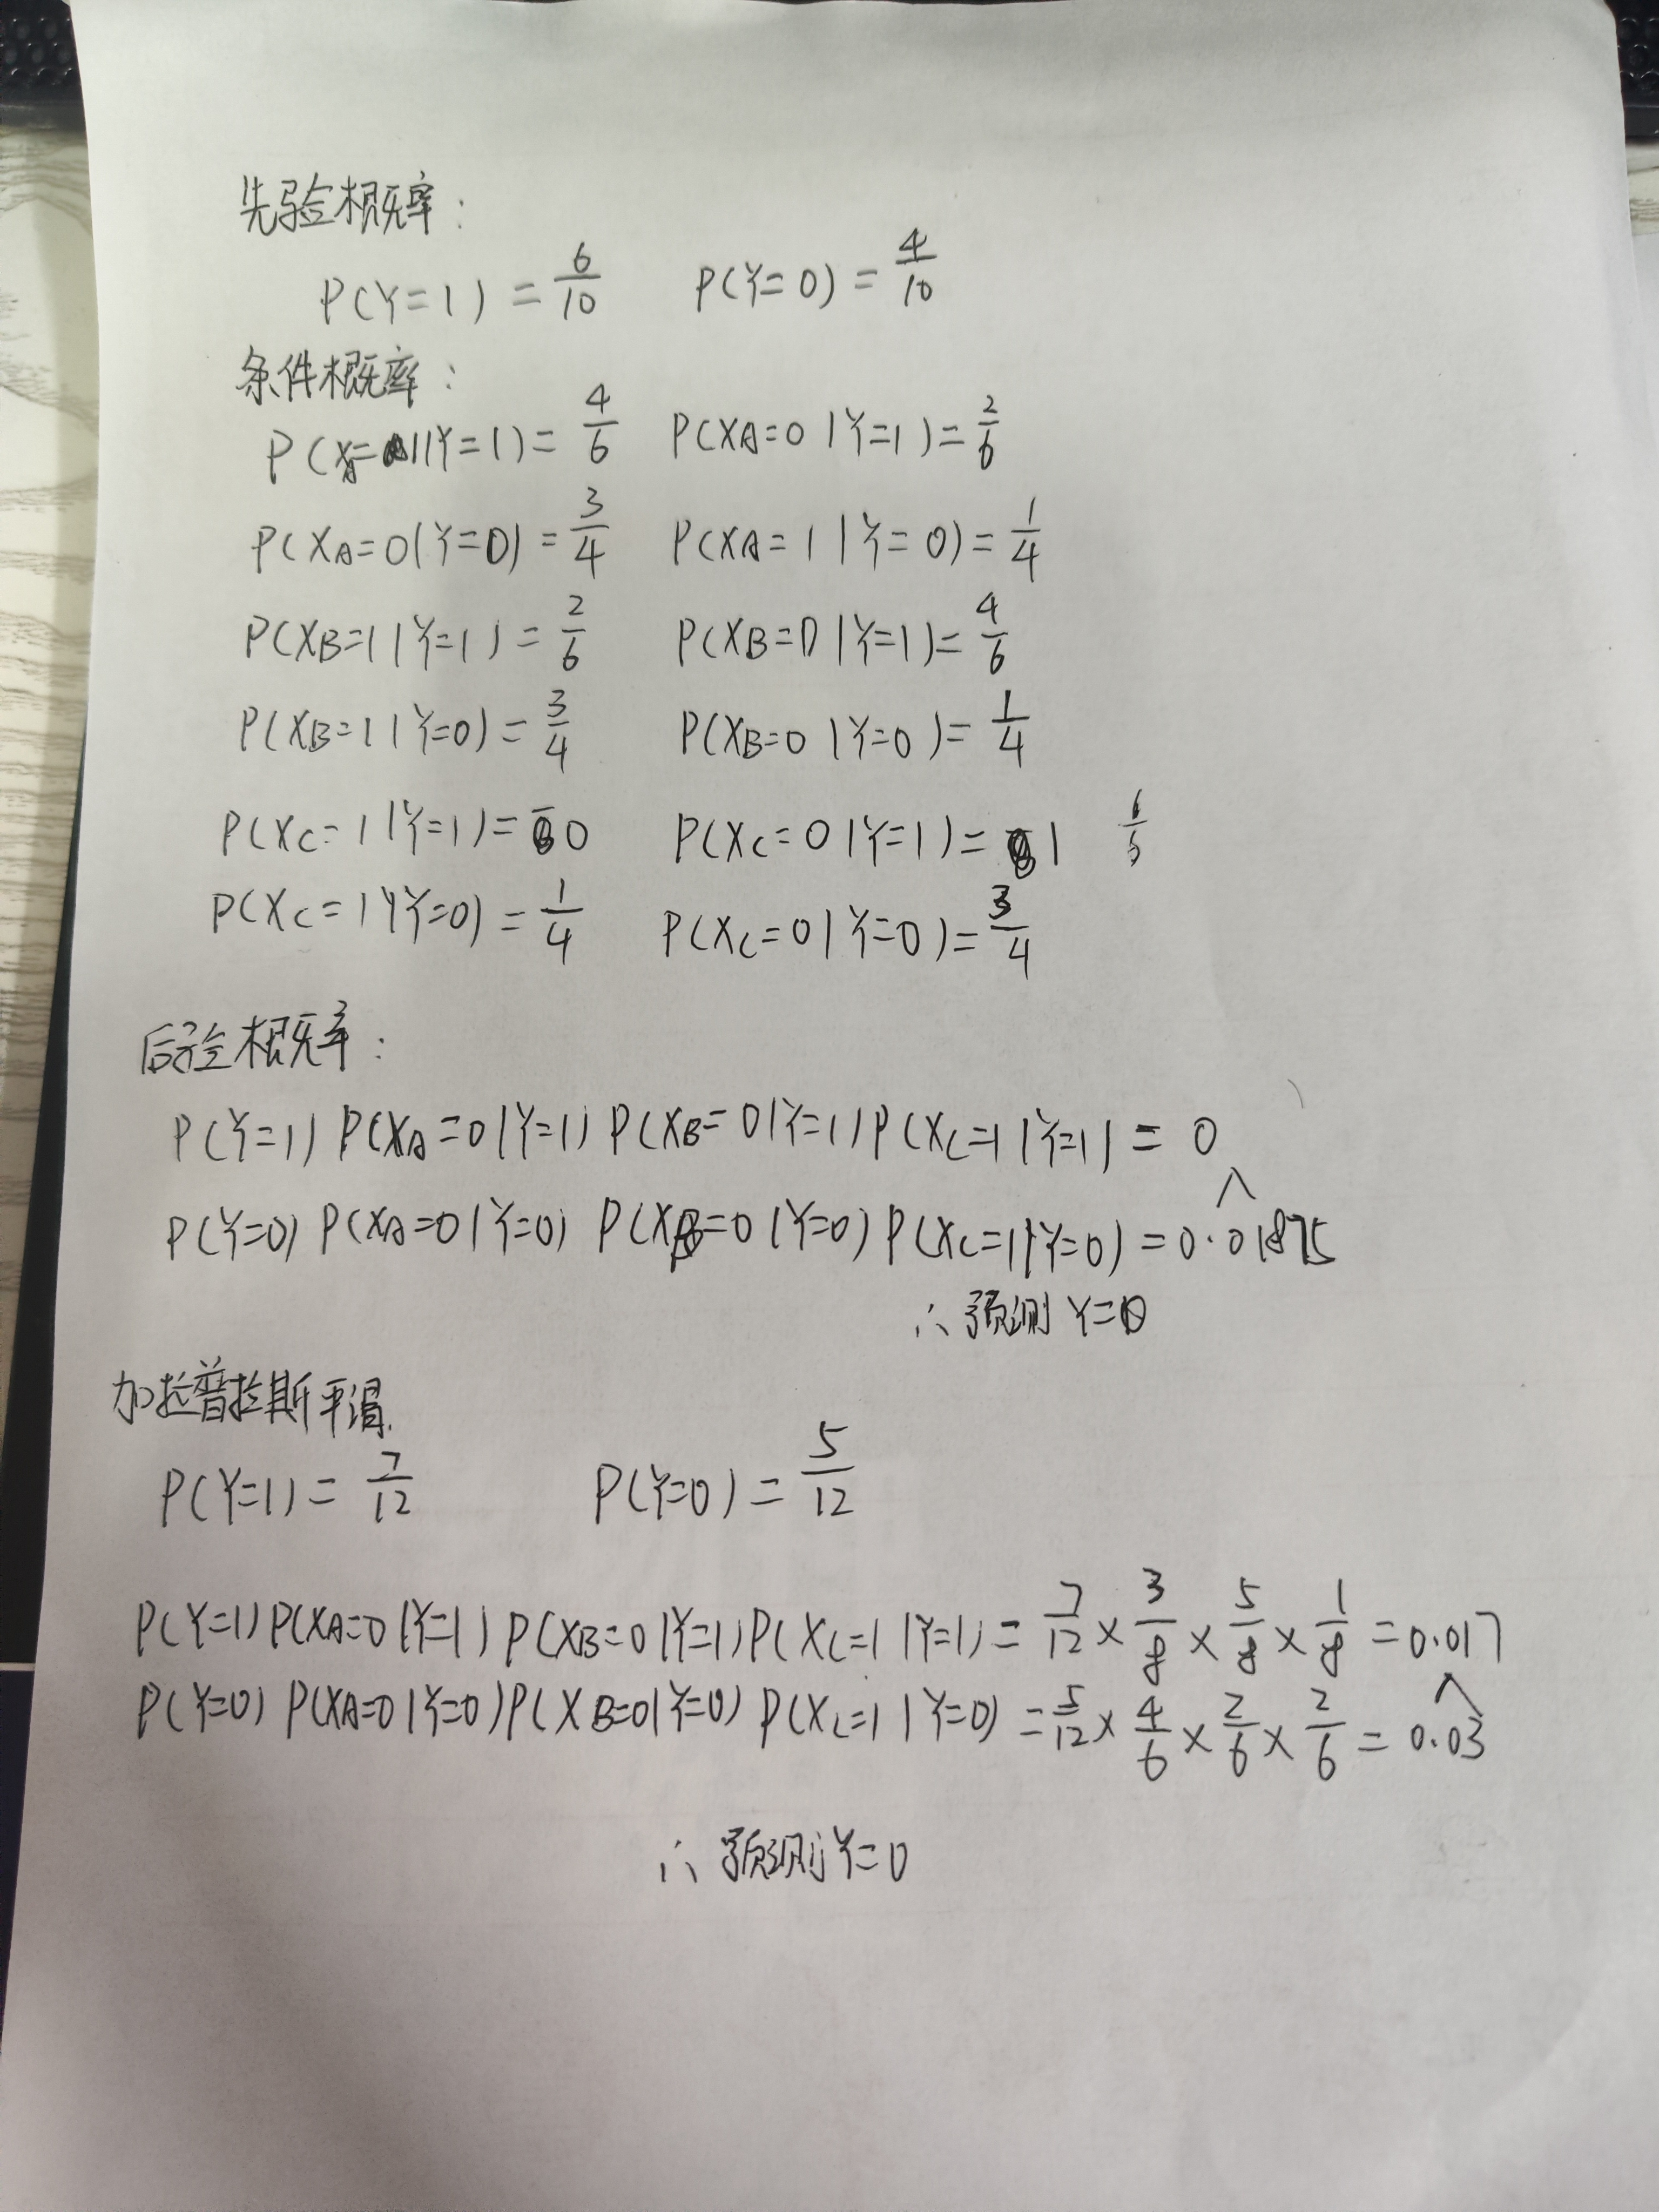 先验概率：
P(Y=1) = 6/10 P(Y=0) = 4/10
条件概率：
P(XA=1|Y=1) = 4/6 P(XA=0|Y=1) = 2/6
P(XA=0|Y=0) = 3/4 P(XA=1|Y=0) = 1/4
P(XB=1|Y=1) = 2/6 P(XB=0|Y=1) = 4/6
P(XB=1|Y=0) = 3/4 P(XB=0|Y=0) = 1/4
P(XC=1|Y=1) = 0 P(XC=0|Y=1) = 1
P(XC=1|Y=0) = 1/4 P(XC=0|Y=0) = 3/4
后验概率：
P(Y=1) P(XA=0|Y=1) P(XB=0|Y=1) P(XC=1|Y=1) = 0
∧
P(Y=0) P(XA=0|Y=0) P(XB=0|Y=0) P(XC=1|Y=0) = 0.01875
∴ 预测 Y=0
加拉普拉斯平滑
P(Y=1) = 7/12 P(Y=0) = 5/12
P(Y=1) P(XA=0|Y=1) P(XB=0|Y=1) P(XC=1|Y=1) = 7/12 × 3/8 × 5/8 × 1/8 = 0.017
∧
P(Y=0) P(XA=0|Y=0) P(XB=0|Y=0) P(XC=1|Y=0) = 5/12 × 4/6 × 2/6 × 2/6 = 0.03
∴ 预测 Y=0